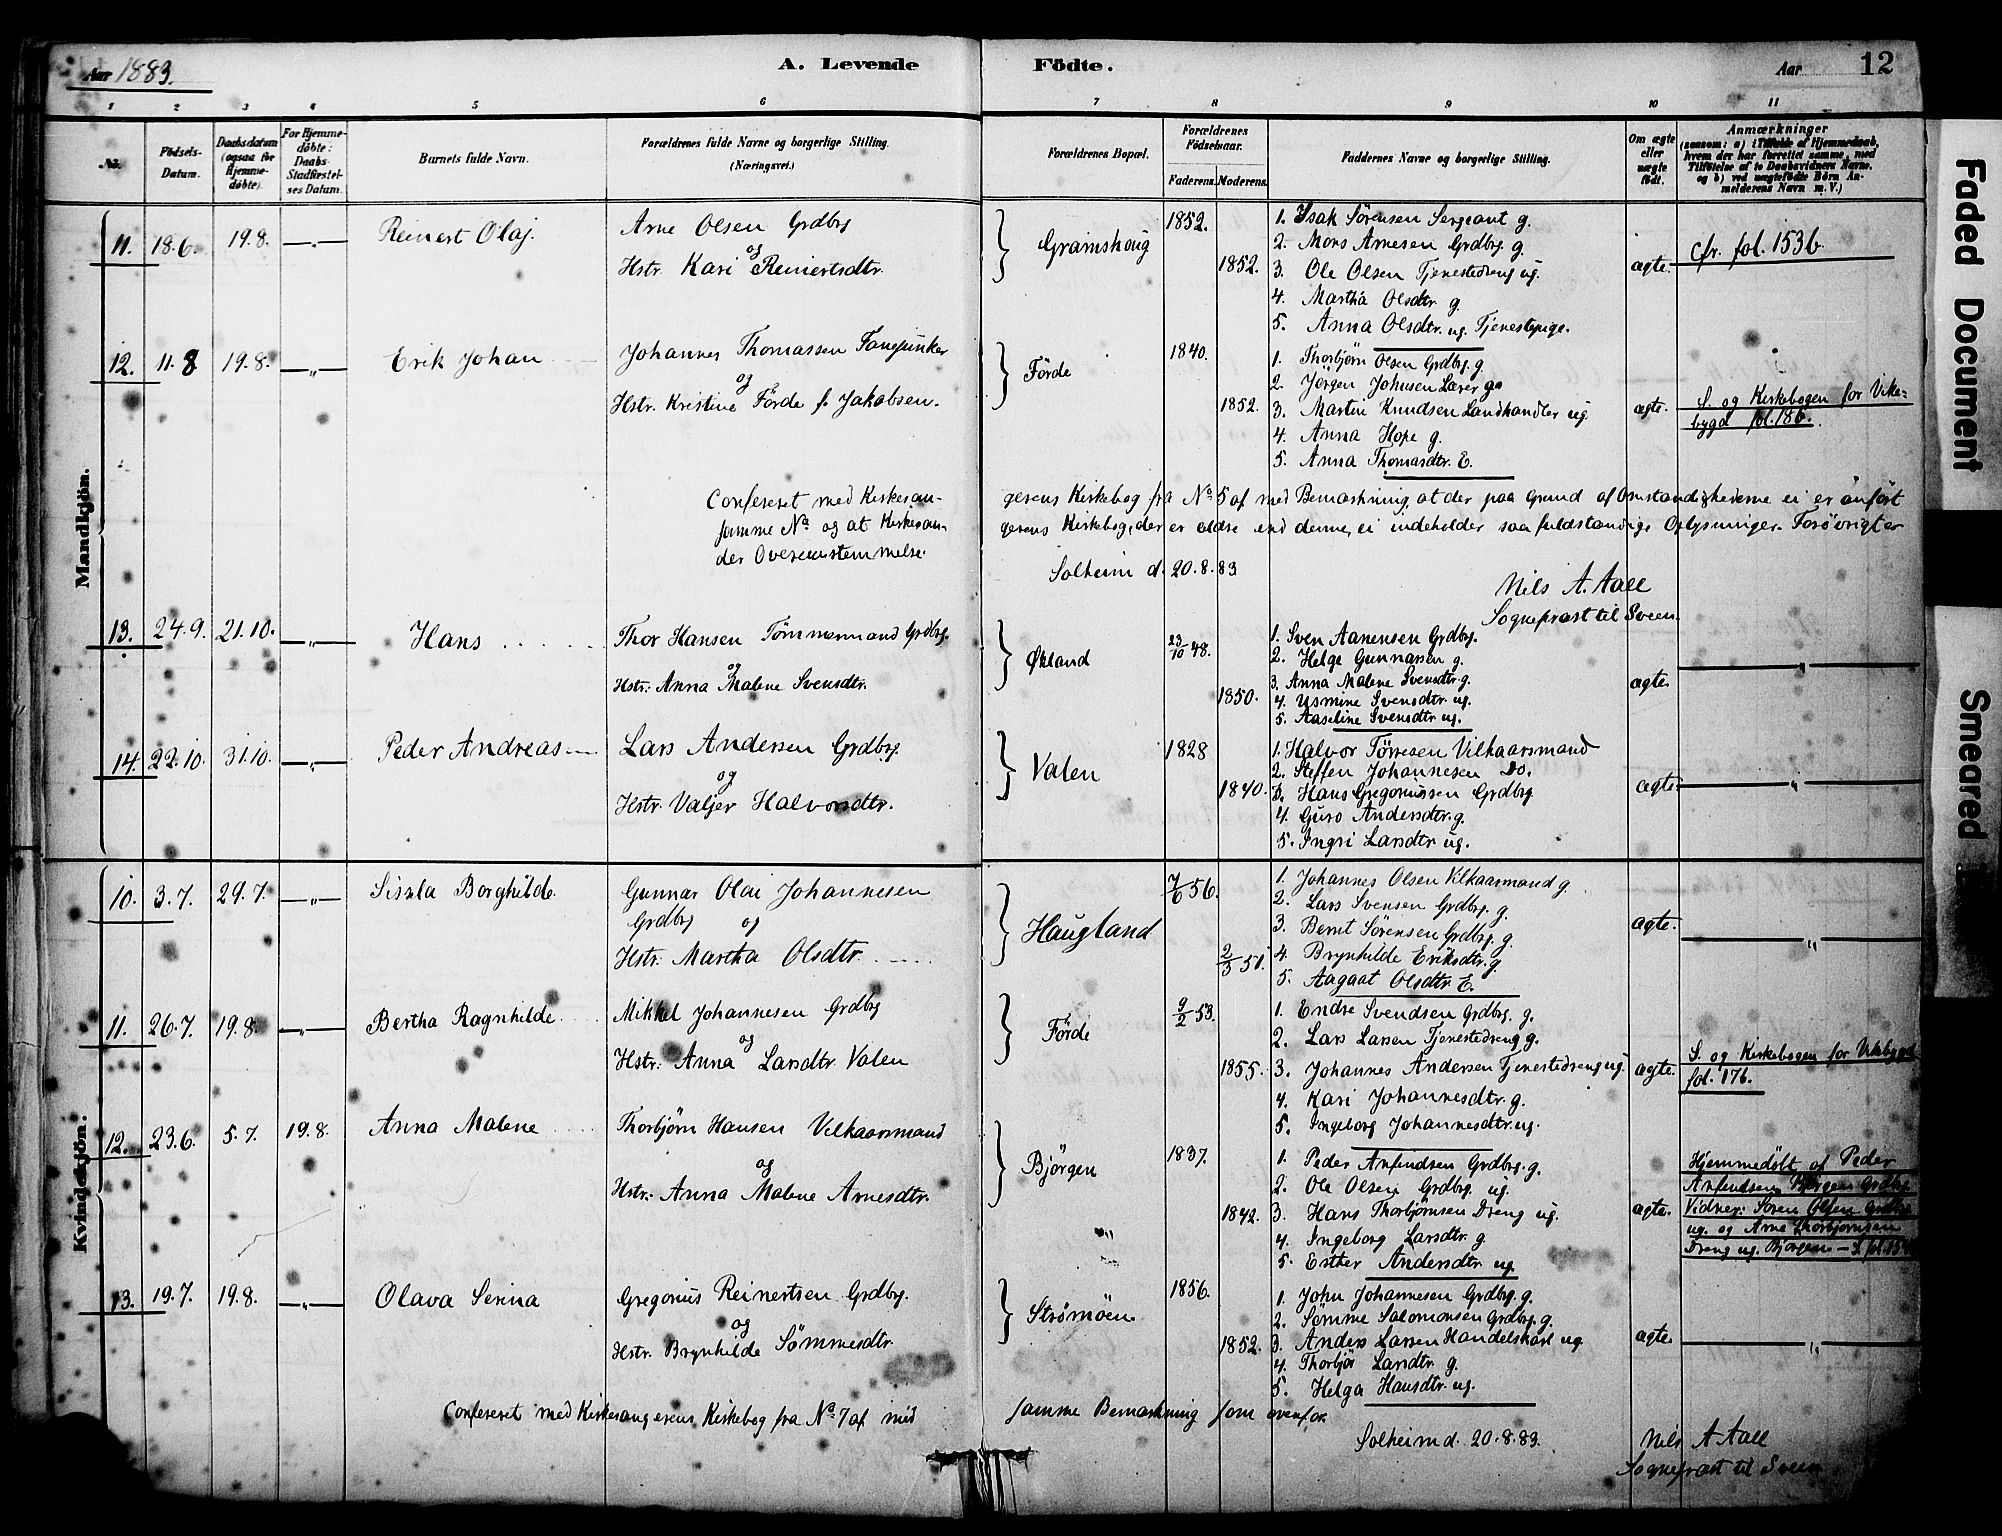 Aar 1883.
A. Levende Födte.
Aar 12
1 2 3 4 5 6 7 8 9 10 11
No.
Födsels-Datum.
Daabsdatum (ogsaa for Hjemme-döbte).
For Hjemme-döbte: Daabs-Stadfæstel-ses Datum.
Barnets fulde Navn.
Forældrenes fulde Navne og borgerlige Stilling.
(Næringsvei.)
Forældrenes Bopæl.
Forældrenes Födselsaar.
Faderens. Moderens.
Faddernes Navne og borgerlige Stilling.
Om ægte eller uægte födt.
Anmærkninger
(saasom: a) i Tilfælde af Hjemmedaab, hvem der har forrettet samme, med Tilföielse af to Daabsvidners Navne, og b) ved uægtefödte Börn An-melderens Navn m. V.)
Mandkjön.
11. 18.6. 19.8. —"— Reinert Olaj.
Arne Olsen Grdbrg
og
Hstr. Kari Reinertsdtr.
Gramshoug
1852.
1852.
1. Isak Sörensen Sergeant g.
2. Mons Arnesen Grdbrg. g.
3. Ole Olsen Tjenestedreng ug.
4. Martha Olsdtr. g.
5. Anna Olsdtr. ug. Tjenestepige.
ægte.
cfr. fol. 153b.
12. 11.8 19.8. —"— Erik Johan
Johannes Thomassen Fanejunker
og
Hstr. Kristine Förde f. Jakobsen.
Förde
1840.
1852.
1. Thorbjörn Olsen Grdbrg. g
2. Jörgen Johnsen Lærer g.
3. Martin Knudsen Landhandler ug.
4. Anna Hope g.
5. Anna Thomasdtr. E.
ægte.
S. og Kirkebogen for Vike-
bygd fol. 186.
Confereret med Kirkesan- gerens Kirkebog fra No 5 af med Bemærkning, at der paa Grund af Omstændighederne ei er anfört
samme No og at Kirkesan- gerens Kirkebog, der er ældre end denne, ei indeholder saa fuldstændige Oplysninger. Forövrigt er
der Overensstemmelse.
Solheim d. 20.8.83
Nils A. Aall
Sognepræst til Sveen.
13. 24.9. 21.10. —"— Hans
Thor Hansen Tömmermand Grdbrg.
og
Hstr. Anna Malene Svensdtr.
Økland
23/10 48.
1850.
1. Sven Aanensen Grdbrg.
2. Helge Gunnarsen g.
3. Anna Malene Svensdtr. g.
4. Usmine Svensdtr ug.
5. Aaseline Svensdtr ug.
ægte. —"—
14. 22.10. 31.10. —"— Peder Andreas
Lars Andersen Grdbrg.
og
Hstr. Valjer Halvorsdtr.
Valen
1828
1840.
1. Halvor Törresen Vilkaarsmand
2. Steffen Johannesen Do.
3. Hans Gregoriussen Grdbrg
4. Guro Andersdtr. g.
5. Ingri Larsdtr ug.
ægte. —"—
Kvindekjön.
10. 3.7. 29.7. —"— Sissla Borghilde.
Gunnar Olai Johannesen
Grdbrg og
Hstr. Martha Olsdtr.
Haugland
7/6 56.
2/3 51.
1. Johannes Olsen Vilkaarsmand g.
2. Lars Svensen Grdbrg. g.
3. Bernt Sörensen Grdbrg. g.
4. Brynhilde Eriksdtr. g.
5. Aagaat Olsdtr E.
ægte. —"—
11. 26.7. 19.8. —"— Bertha Ragnhilde
Mikkel Johannesen Grdbrg
og
Hstr. Anna Larsdtr Valen
Förde
9/2 53.
1855.
1. Endre Svendsen Grdbrg. g.
2. Lars Larsen Tjenestedreng g.
3. Johannes Andersen Tjenestedreng ug.
4. Kari Johannesdtr. g.
5. Ingeborg Johannesdtr. ug.
ægte.
S. og Kirkebogen for Vikebygd
fol. 176.
12. 23.6. 5.7. 19.8. Anna Malene
Thorbjörn Hansen Vilkaarsmand
og
Hstr. Anna Malene Arnesdtr.
Björgen
1837.
1842.
1. Peder Anfindsen Grdbrg. g.
2. Ole Olsen Grdbrg. ug.
3. Hans Thorbjörnsen Dreng ug.
4. Ingeborg Larsdtr. g.
5. Esther Andersdtr. ug.
ægte.
Hjemmedöbt af Peder
Anfindsen Björgen Grdbrg.
Vidner: Sören Olsen Grdbrg
ug. og Arne Thorbjörnsen
Dreng ug. Bjørgen – S. fol.
13. 19.7. 19.8. —"— Olava Serina
Gregorius Reinertsen Grdbrg.
og
Hstr. Brynhilde Sömmesdtr.
Strömöen
1856.
1852.
1. John Johannesen Grdbrg. g.
2. Sömme Salomonsen Grdbrg. g.
3. Anders Larsen Handelskarl ug
4. Thorbjör Larsdtr. g.
5. Helga Hansdtr. ug.
ægte. —"—
Confereret med Kirkesangerens Kirkebog fra No 7 af med samme Bemærkning som ovenfor.
Solheim d. 20.8.83.
Nils A Aall
Sognepræst til Sveen
Faded Document
Smeared